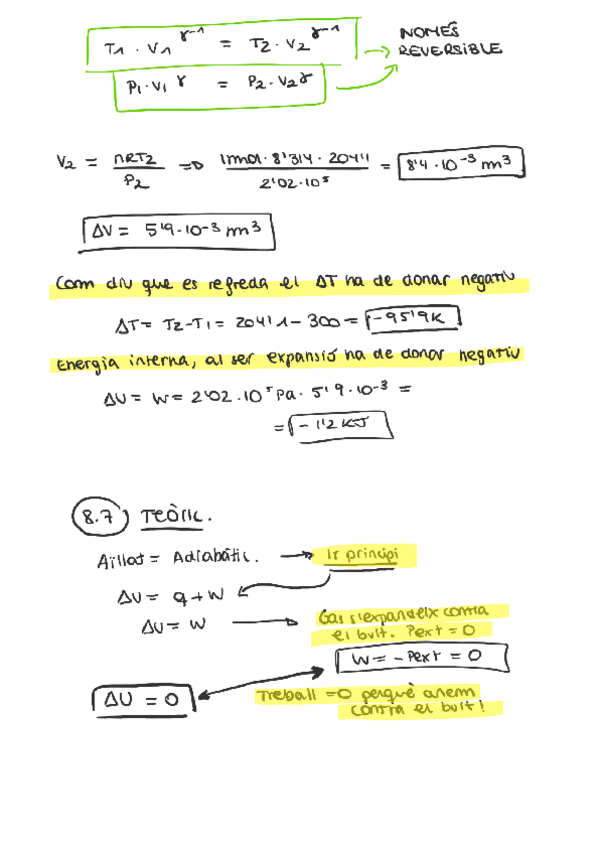 T1 · V1^γ-1 = T2 · V2^γ-1
NOMÉS
REVERSIBLE
P1·V1^γ = P2·V2^γ
V2 = nRT2/P2 => 1mol·8'314·204'1/2'02·10^5 = 8'4·10^-3 m^3
ΔV = 5'9·10^-3 m^3
Com diu que es refreda el ΔT ha de donar negatiu
ΔT = T2-T1 = 204'1-300 = -95'9K
Energia interna, al ser expansió ha de donar negatiu
ΔU = W = 2'02·10^5 Pa· 5'9·10^-3 =
= -1'2 KJ
8.7 TEÒRIC.
Aïllat = Adiabàtic. → 1r principi
ΔU = q + W
ΔU = W → Gas s'expandeix contra
el buit. Pext = 0
W = -Pext = 0
ΔU = 0
Treball =0 perquè anem
contra el buit!